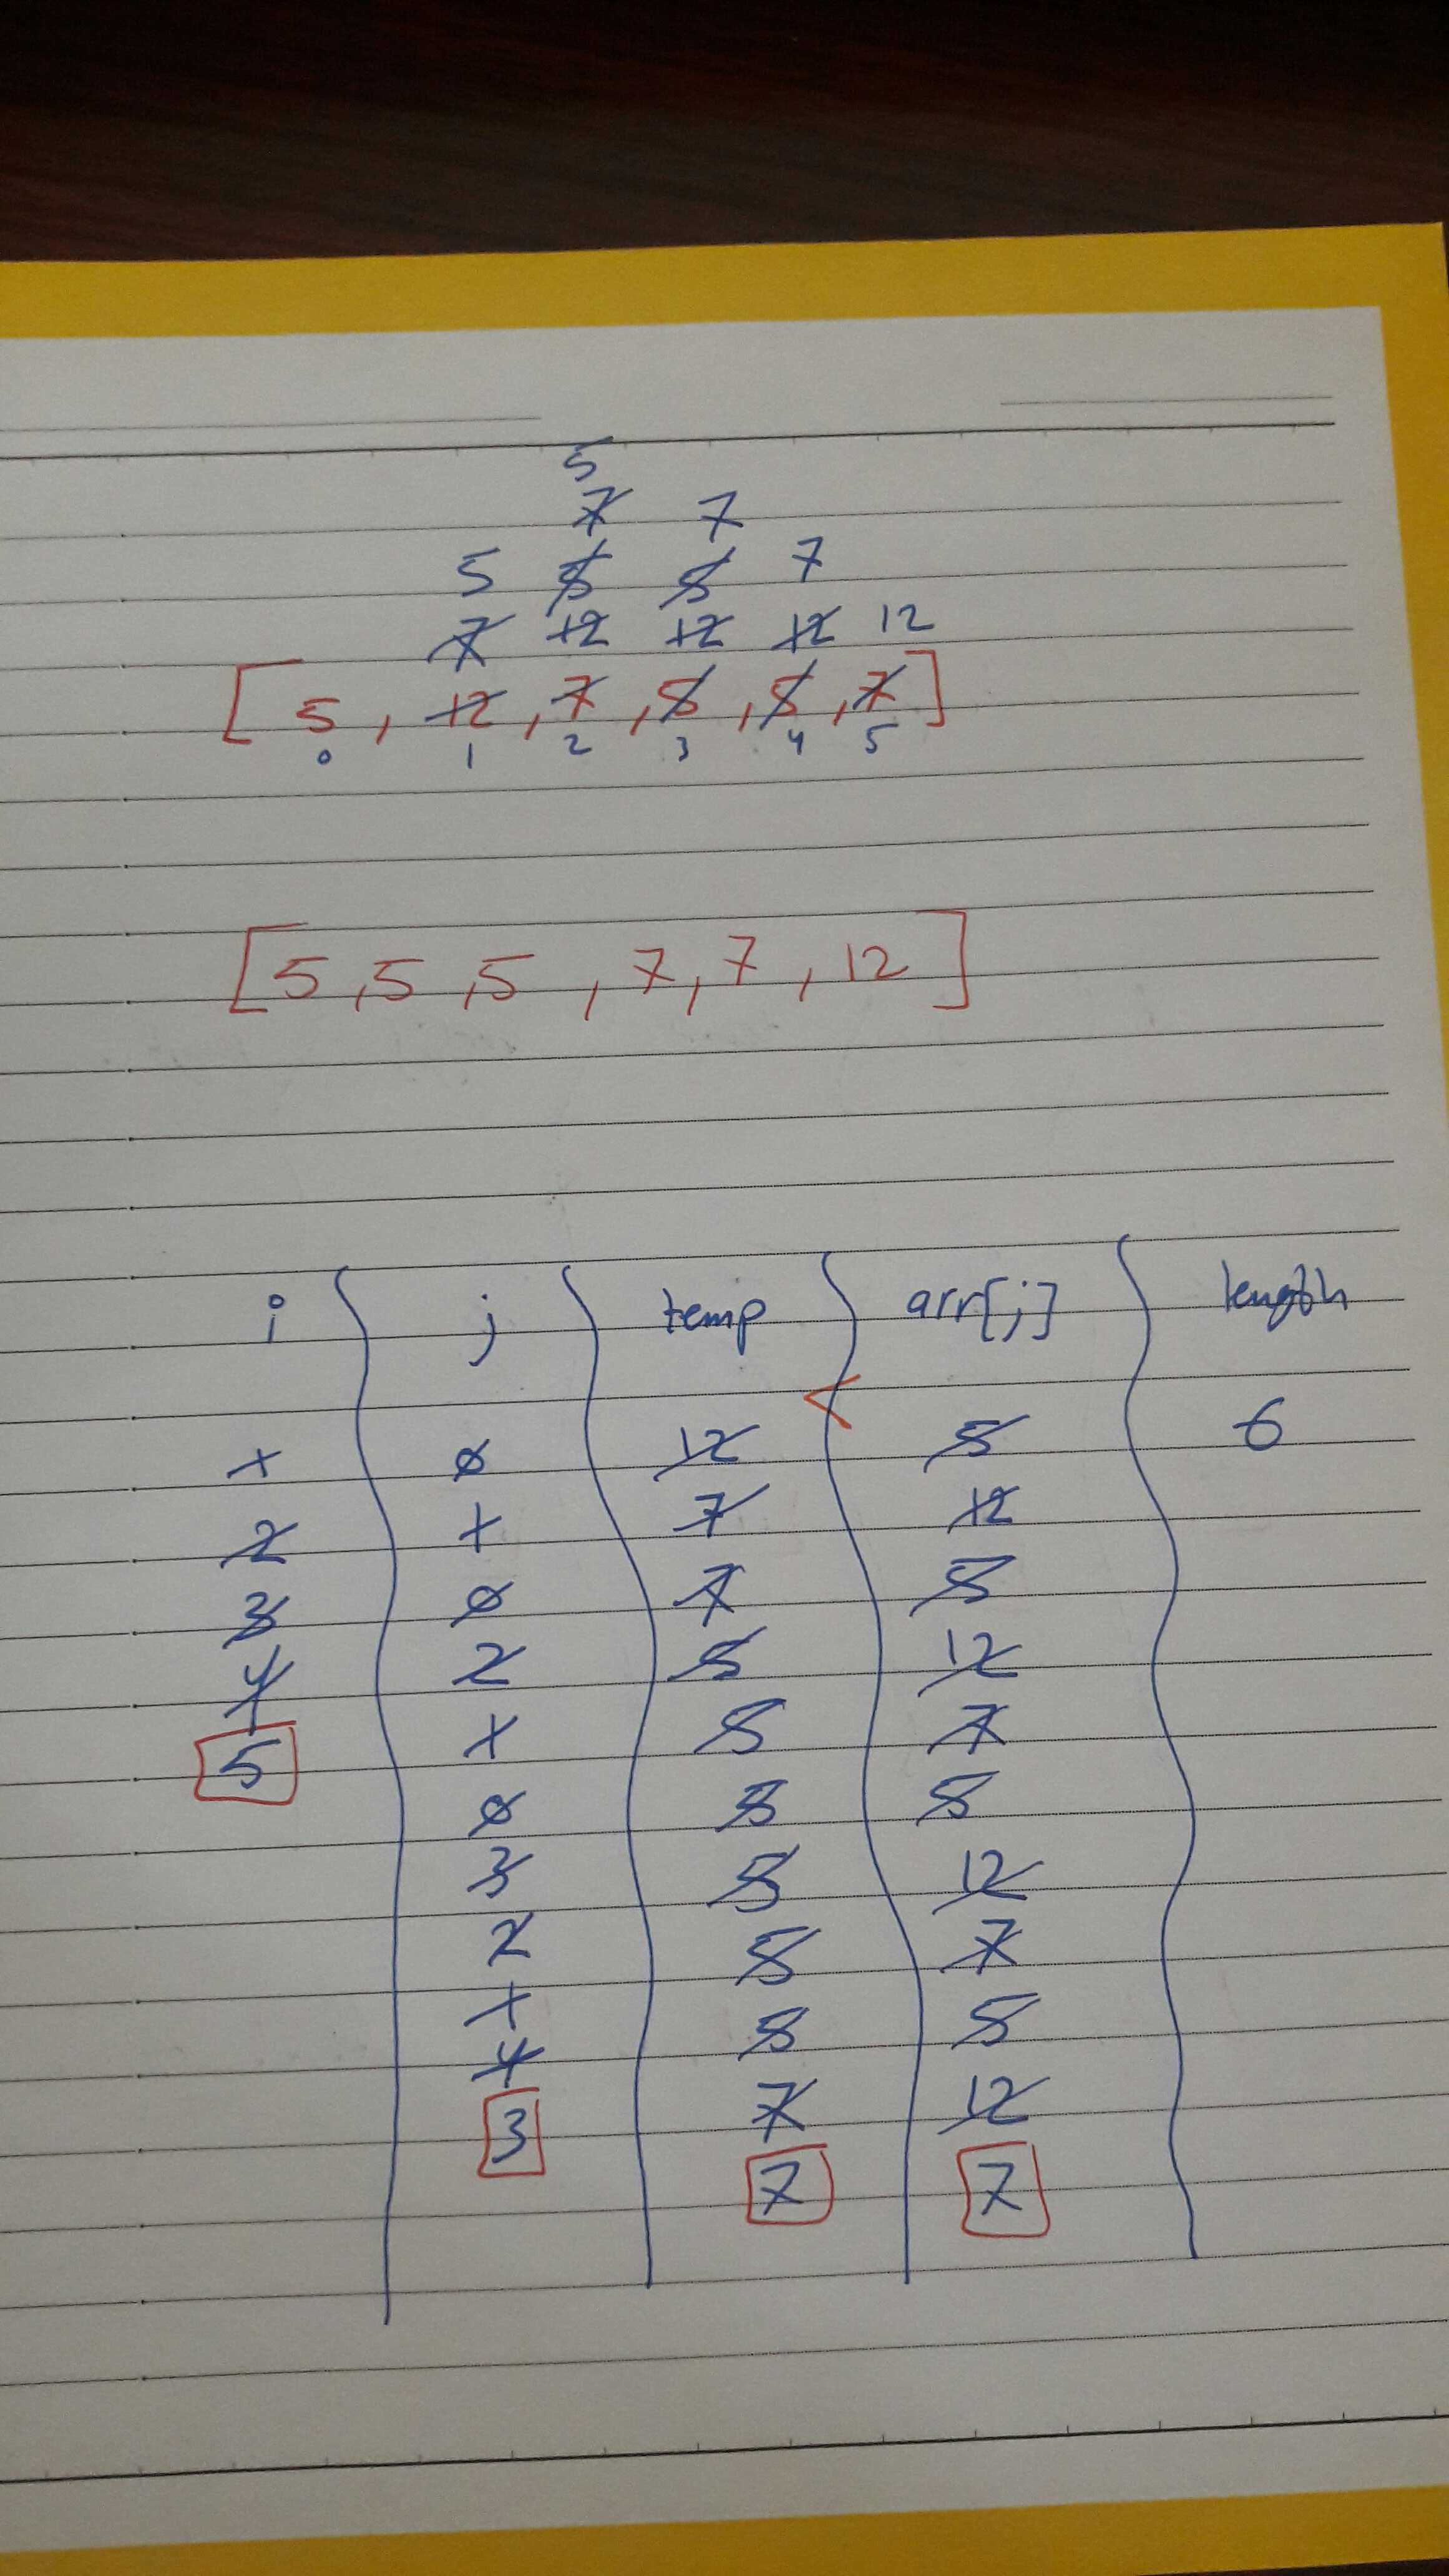 5
7 7
5 5 5 7
7 12 12 12 12
[5, 12, 7, 5, 5, 7]
0 1 2 3 4 5
[5, 5, 5, 7, 7, 12]
i j temp arr[j] length
<
1 0 12 5 6
2 1 7 12
3 0 7 5
4 2 5 12
5 1 5 7
0 5 5
3 5 12
2 5 7
1 5 5
4 7 12
3 7 7